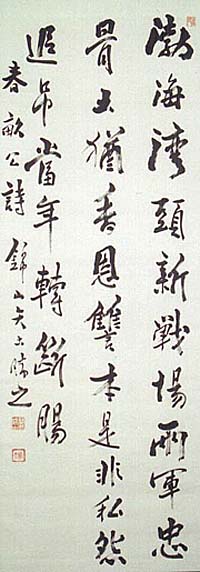 渤海灣頭新戰場兩軍忠
骨土猶香恩讐本是非私怨
追吊當年轉斷腸
春畝公詩　錦山矢土勝之